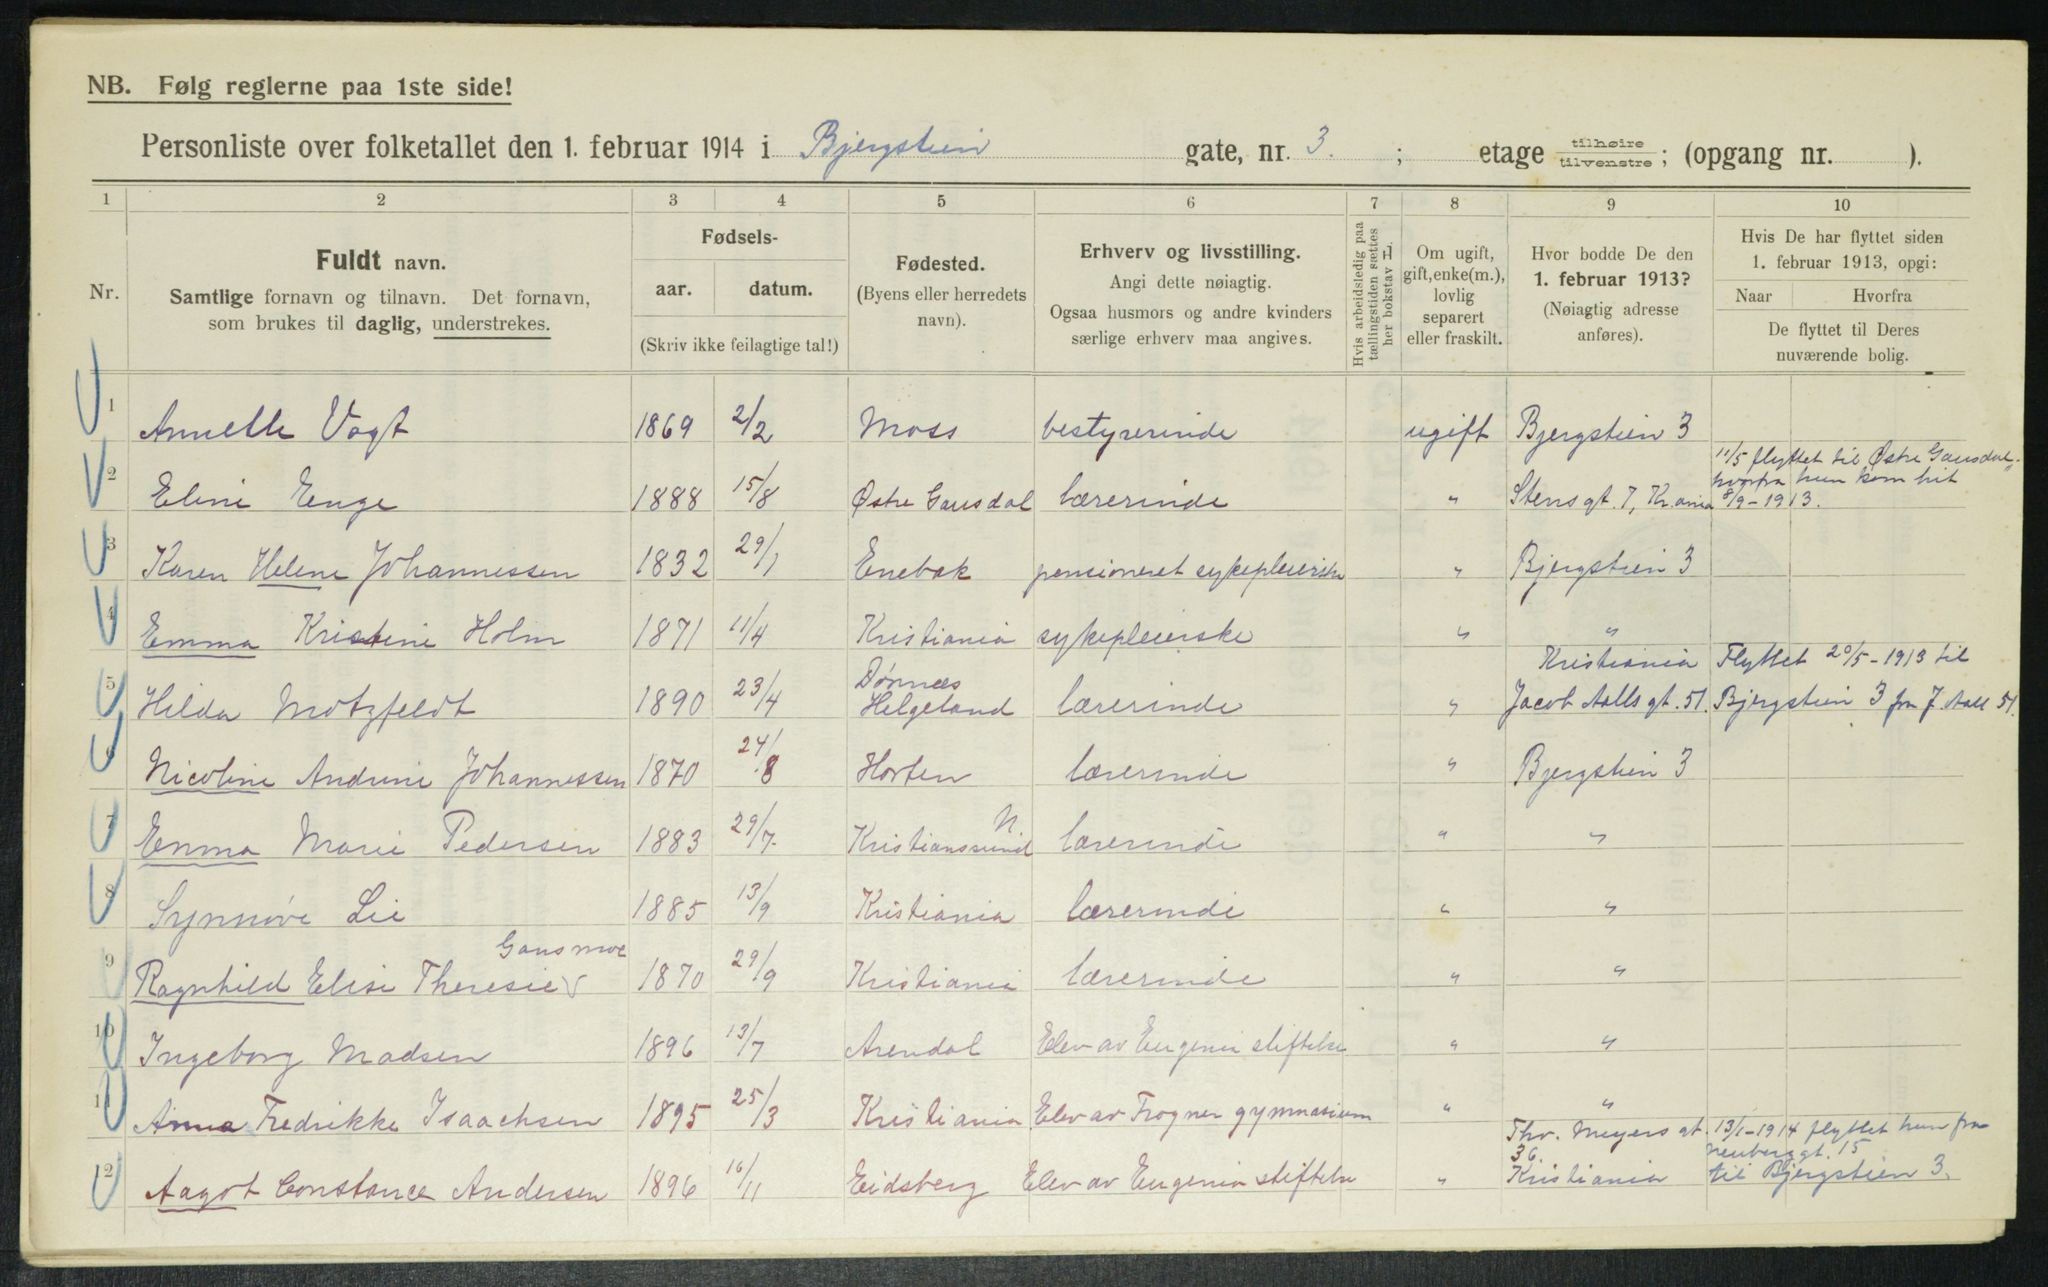 NB. Følg reglerne paa 1ste side!
Personliste over folketallet den 1. februar 1914 i Bjergstien gate, nr. 3. ; etage tilhøire tilvenstre ; (opgang nr. ).
1 2 3 4 5 6 7 8 9 10
Nr.
Fuldt navn.
Samtlige fornavn og tilnavn. Det fornavn,
som brukes til daglig, understrekes.
Fødsels-
aar. datum.
(Skriv ikke feilagtige tal!)
Fødested.
(Byens eller herredets
navn).
Erhverv og livsstilling.
Angi dette nøiagtig.
Ogsaa husmors og andre kvinders
særlige erhverv maa angives.
Hvis arbeidsledig paa
tællingstiden sættes
her bokstav L
Om ugift,
gift, enke(m.),
lovlig
separert
eller fraskilt.
Hvor bodde De den
1. februar 1913?
(Nøiagtig adresse
anføres).
Hvis De har flyttet siden
1. februar 1913, opgi:
Naar Hvorfra
De flyttet til Deres
nuværende bolig.
1 Annette Vogt 1869 2/2 Moss bestyrerinde ugift Bjergstien 3
11/5 flyttet til Østre Gausdal,
hvorfra hun kom hit
2 Eline Enge 1888 15/8 Østre Gausdal lærerinde " Stensgt. 7, Kr.ania 8/9-1913.
3 Karen Helene Johannessen 1832 29/1 Enebak pensioneret sykepleierske " Bjergstien 3
4 Emma Kristine Holm 1871 11/4 Kristiania sykepleierske " "
Dønnes Kristiania Flyttet 20/5-1913 til
5 Hilda Motzfeldt 1890 23/4 Helgeland lærerinde " Jacob Aalls gt. 51. Bjergstien 3 fra J. Aall 51.
6 Nicoline Andrine Johannessen 1870 24/8 Horten lærerinde " Bjergstien 3
7 Emma Marie Pedersen 1883 29/7. Kristianssund N. lærerinde " "
8 Synnøve Lie 1885 13/9 Kristiania lærerinde " "
Gausmoe
9 Ragnhild Elise Theresie 1870 29/9 Kristiania lærerinde " "
10 Ingeborg Madsen 1896 13/7 Arendal Elev av Eugenia stiftelse " "
11 Anna Fredrikke Isaachsen 1895 25/3 Kristiania Elev av Frogner gymnasium " "
Thv. Meyers gt. 13/1-1914 flyttet hun fra
36. Neuberggt. 15
12 Aagot Constance Andersen 1896 16/11 Eidsberg Elev av Eugenia stiftelse " Kristiania til Bjergstien 3.